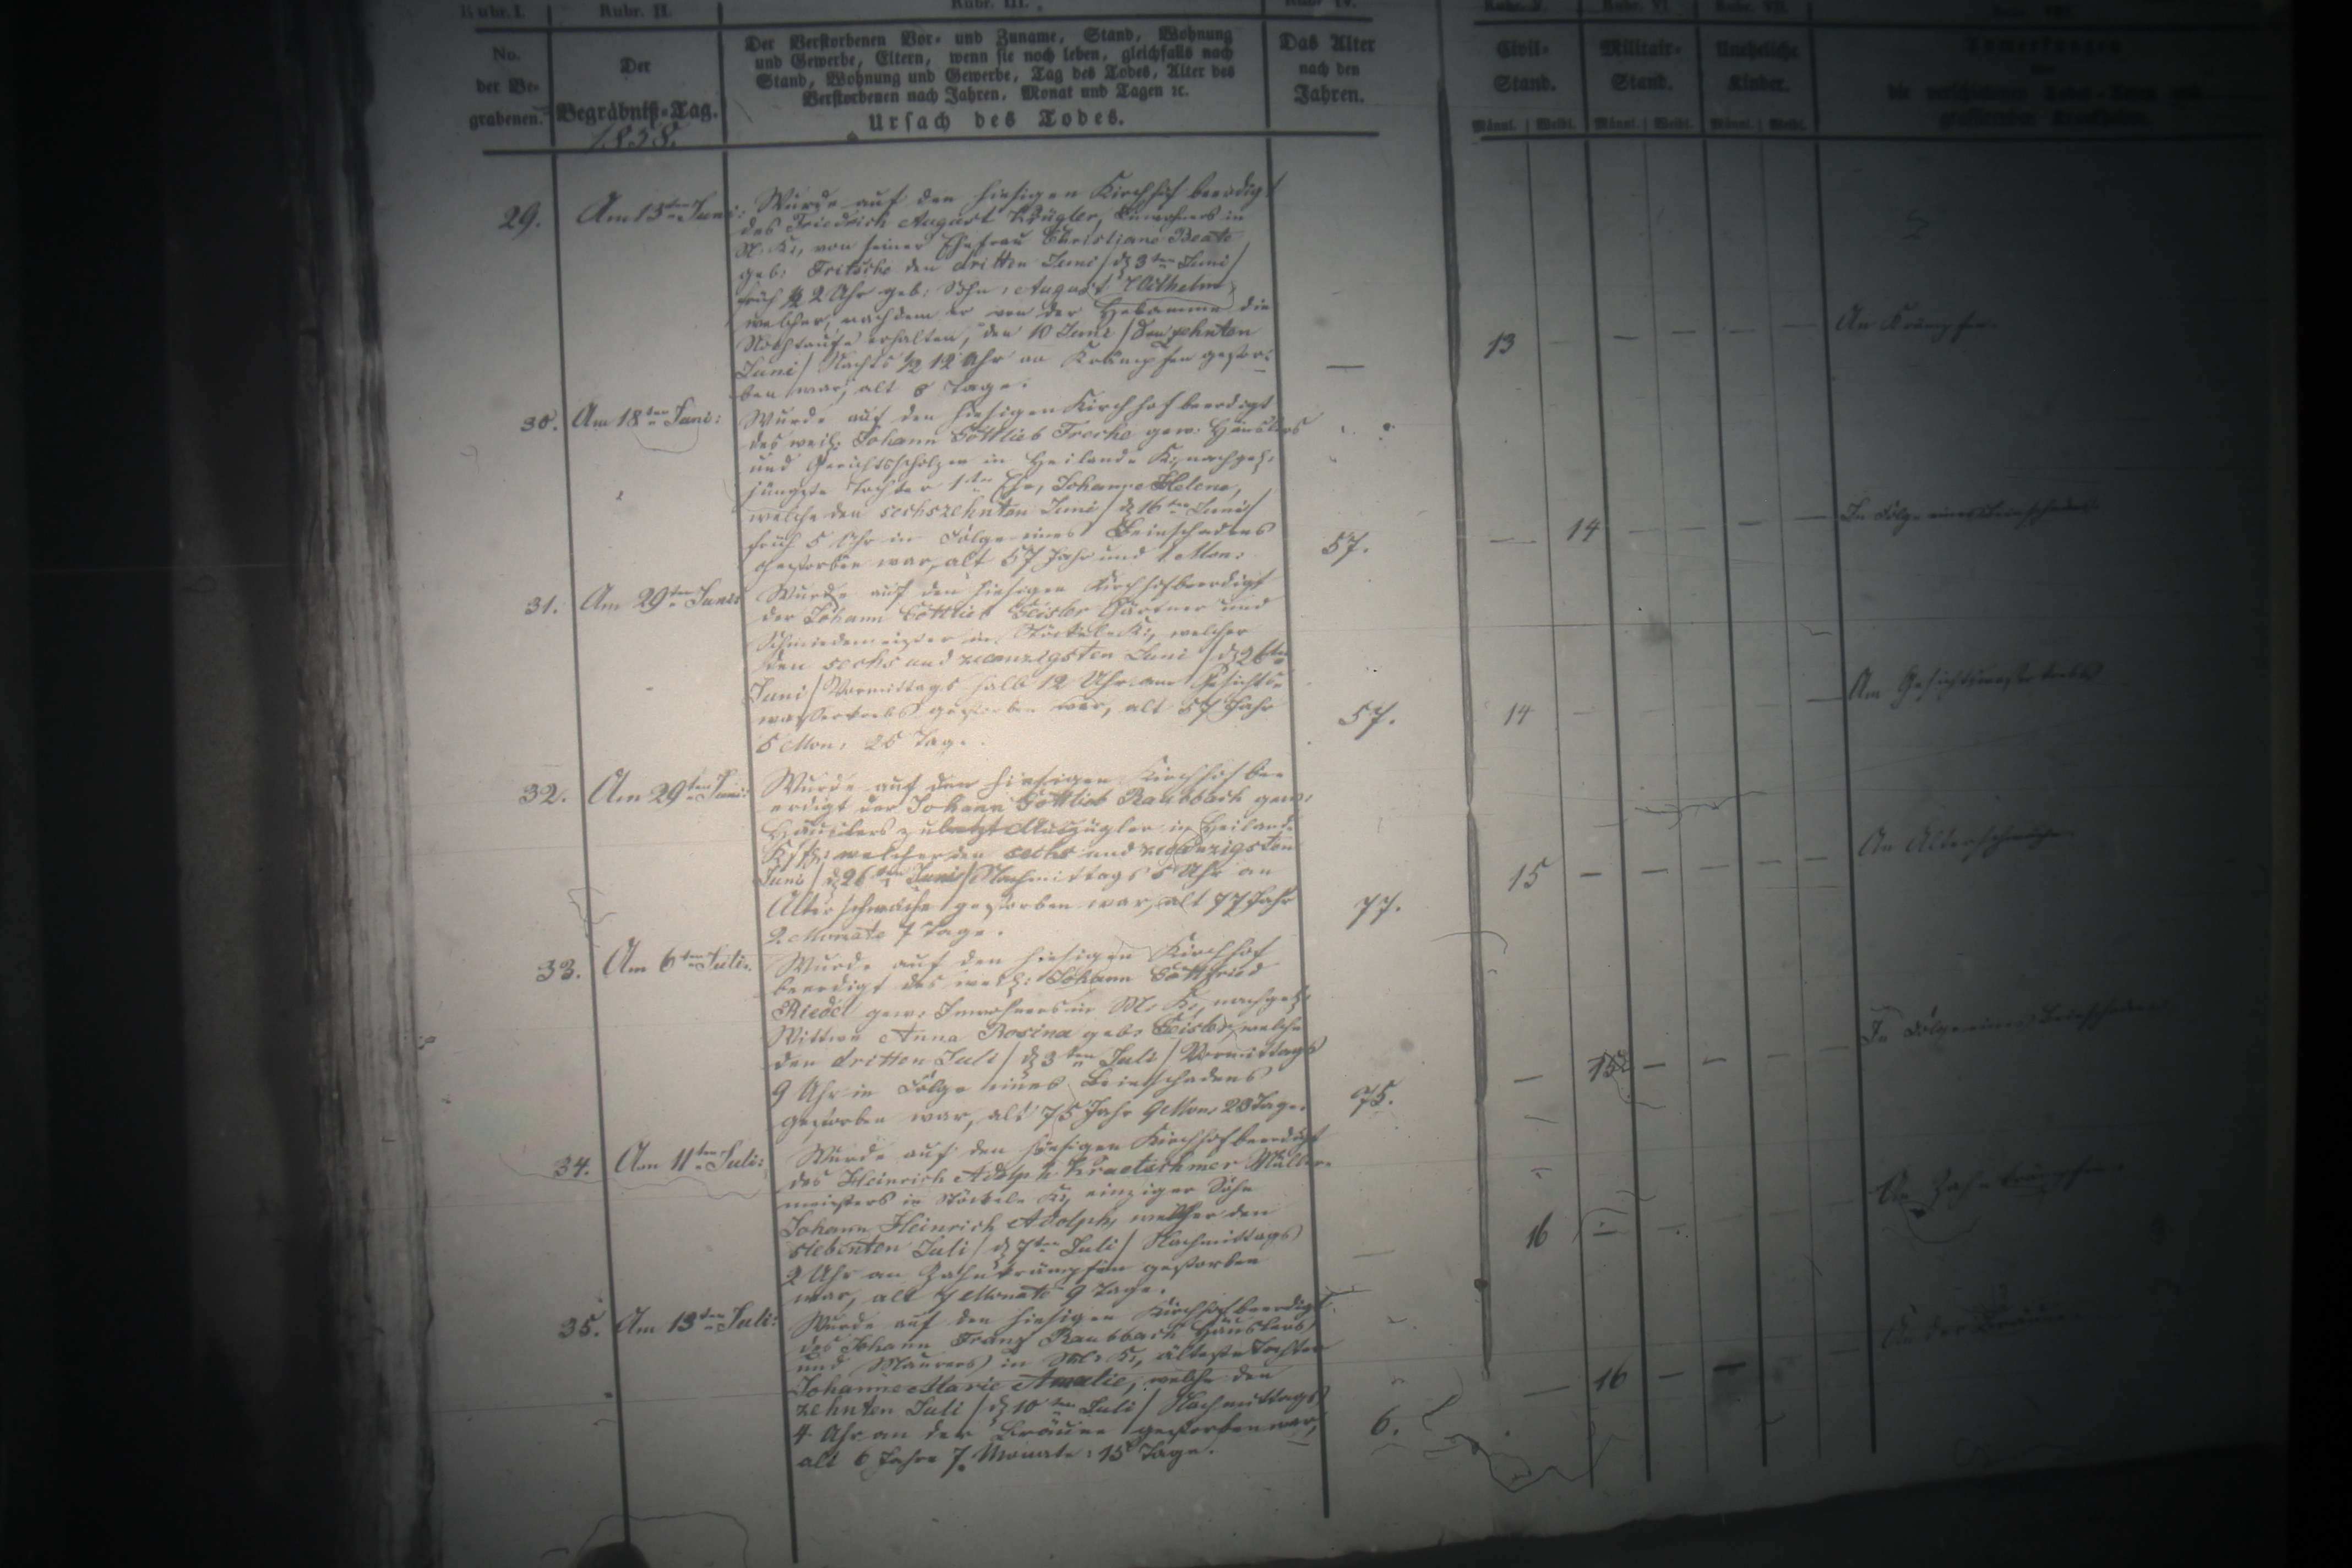 Rubr. I. Rubr. II. Rubr. III. Rubr. IV. Rubr. V. Rubr. VI. Rubr. VII. Rubr. VIII.
No.
der Be-
grabenen.
Der
Begräbniß-Tag.
1858.
Der Verstorbenen Vor- und Zuname, Stand, Wohnung
und Gewerbe, Eltern, wenn sie noch leben, gleichfalls nach
Stand, Wohnung und Gewerbe, Tag des Todes, Alter des
Verstorbenen nach Jahren, Monat und Tagen ꝛc.
Ursach des Todes.
Das Alter
nach den
Jahren.
Civil-
Stand.
Militair-
Stand.
Uneheliche
Kinder.
Anmerkungen
über
die verschiedenen Todes-Arten und
grassirenden Krankheiten.
Männl. Weibl. Männl. Weibl. Männl. Weibl.
29. Am 13ten Juni: Wurde auf den hiesigen Kirchhof beerdigt
des Friedrich August Krügler, Einwohners in
N. K., von seiner Ehefrau Christjane Beate
geb. Fritsche den dritten Juni / d 3ten Juni /
früh ½ 2 Uhr geb. Sohn, August Wilhelm,
welcher, nachdem er von der Hebamme die
Nothtaufe erhalten, den 10 Juni / den zehnten
Juni / Nachts ½ 12 Uhr an Krämpfen gestor-
ben war, alt 8 Tage.
— 13 — — — — — An Krämpfen.
30. Am 18ten Juni: Wurde auf den hiesigen Kirchhof beerdigt
des weil. Johann Gottlieb Froche gew. Häuslers
und Gerichtsscholzen in Heilande K., nachgel.
jüngste Tochter 1ter Ehe, Johanne Helene,
welche den sechszehnten Juni / d 16ten Juni /
früh 5 Uhr in Folge eines Beinschadens
gestorben war, alt 57 Jahr und 1 Mon.
57. — 14 — — — — In Folge eines Beinschadens
31. Am 29ten Juni: Wurde auf den hiesigen Kirchhof beerdigt
der Johann Gottlieb Geisler Gärtner und
Schmiedemeister in Stöckel-K., welcher
den sechs und zwanzigsten Juni / d 26ten
Juni / Vormittags halb 12 Uhr am Gesichts-
wasserkrebs gestorben war, alt 57 Jahr
5 Mon. 25 Tage.
57. 14 — — — — — Am Gesichtswasserkrebs
32. Am 29ten Juni: Wurde auf den hiesigen Kirchhof be-
erdigt der Johann Gottlieb Raubbach gew.
Häuslers zuletzt Auszügler in Heiland-
K., welcher den sechs und zwanzigsten
Juni / d 26ten Juni / Nachmittags 5 Uhr an
Altersschwäche gestorben war, alt 77 Jahr
2 Monate 7 Tage.
77. 15 — — — — — An Altersschwäche
33. Am 6ten Juli: Wurde auf den hiesigen Kirchhof
beerdigt des weil. Johann Gottfried
Riedel gew. Inwohners in N. K., nachgel.
Wittwe Anna Rosina geb. Geisler, welche
den dritten Juli / d 3ten Juli / Vormittags
9 Uhr in Folge eines Beinschadens
gestorben war, alt 75 Jahr 9 Mon. 28 Tage.
75. — 15 — — — — In Folge eines Beinschadens
34. Am 11ten Juli: Wurde auf den hiesigen Kirchhof beerdigt
des Heinrich Adolph Kraetschmer Müller-
meisters in Stöckel-K. einziger Sohn
Johann Heinrich Adolph, welcher den
siebenten Juli / d 7ten Juli / Nachmittags
2 Uhr an Zahnkrämpfen gestorben
war, alt 7 Monate 9 Tage.
— 16 — — — — — An Zahnkrämpfen.
35. Am 13ten Juli: Wurde auf den hiesigen Kirchhof beerdigt
des Johann Franz Raubbach Häuslers
und Maurers in N. K., älteste Tochter
Johanne Marie Amalie, welche den
zehnten Juli / d 10ten Juli / Nachmittags
4 Uhr an der Bräune gestorben war,
alt 6 Jahre 7 Monate 15 Tage.
6. — 16 — — — — An der Bräune.